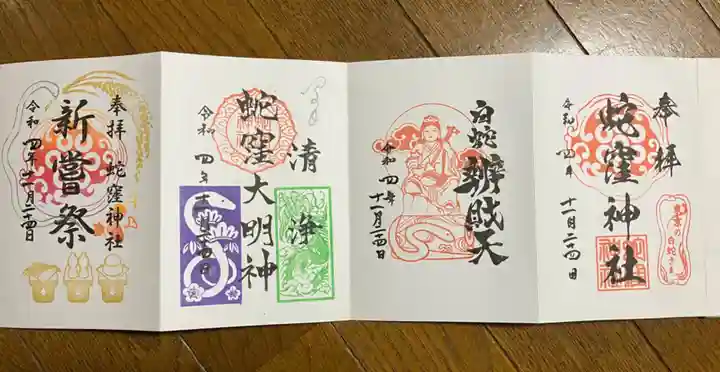 奉拝
蛇窪神社
令和四年十一月二十四日
白蛇辨財天
令和四年
十一月二十四日
清浄
蛇窪大明神
令和四年十一月二十四日
奉拝 蛇窪神社
新嘗祭
令和四年十一月二十四日